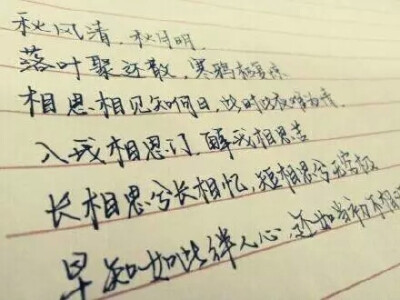 秋风清,秋月明.
落叶聚还散,寒鸦栖复惊
相思相见知何日,此时此夜难为情
入我相思门,解我相思苦
长相思兮长相忆,短相思兮无穷极
早知如此绊人心,还如当初不相